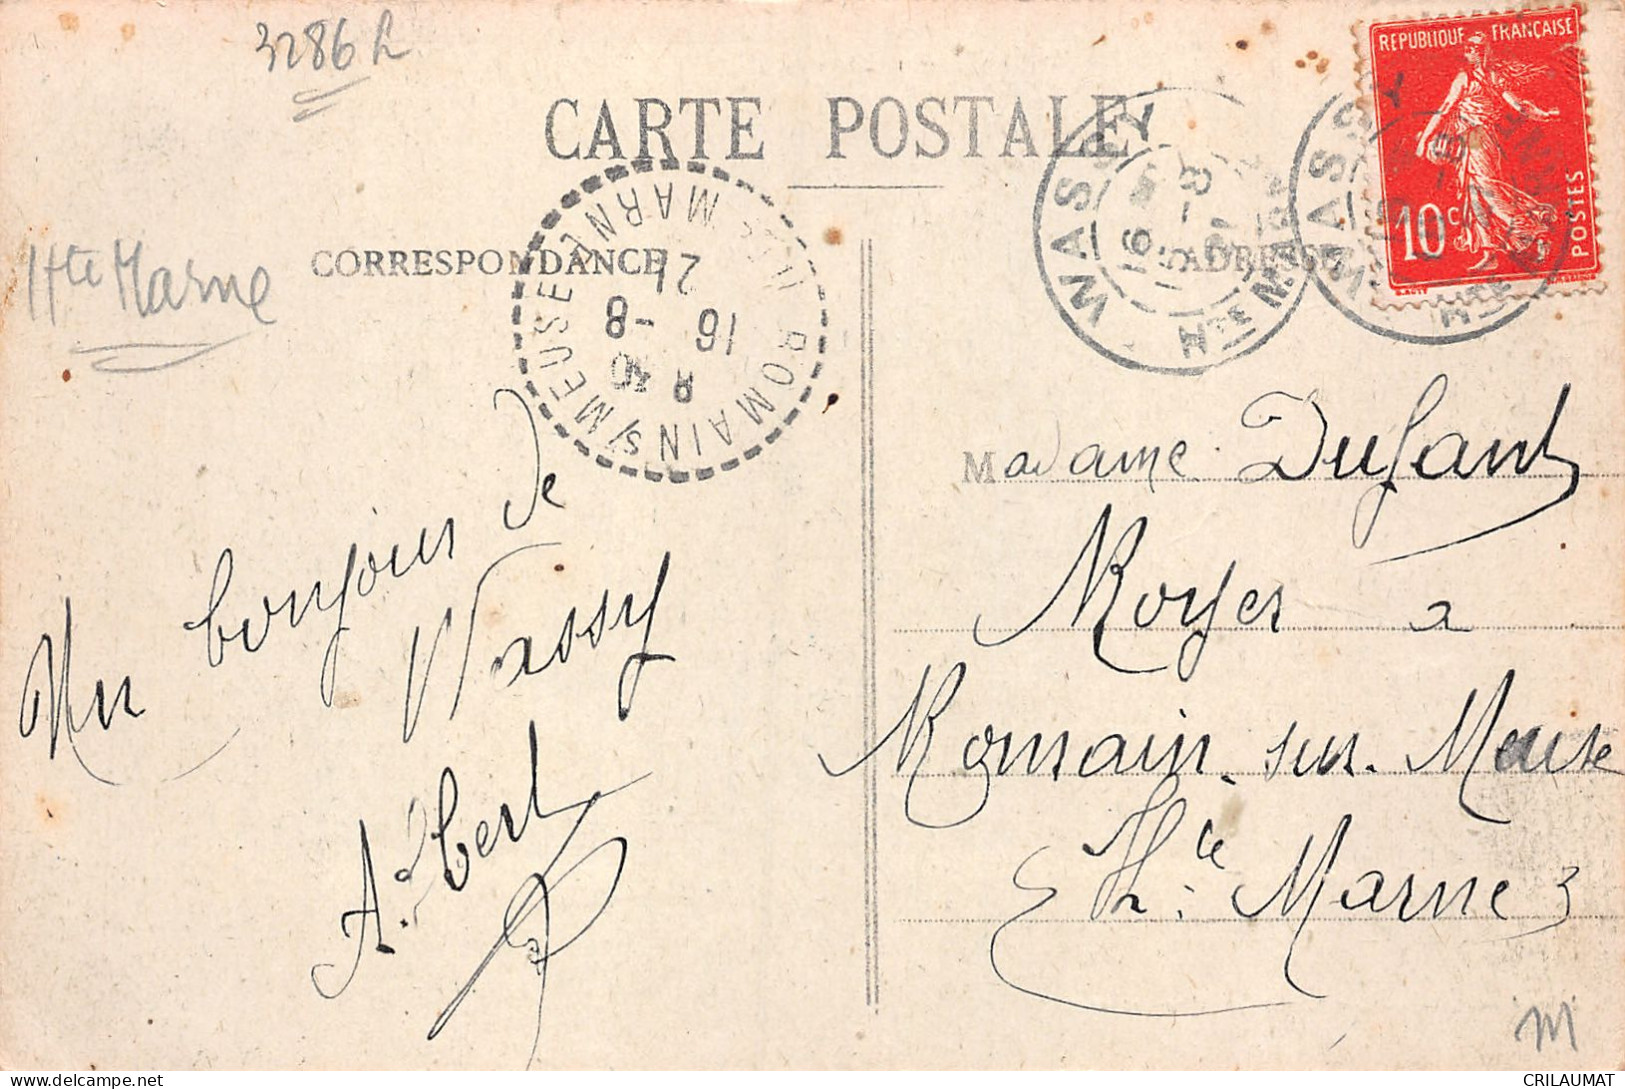 3286 h
CARTE POSTALE
REPUBLIQUE FRANÇAISE
10c
POSTES
WASSY
16 -8
HTE MARNE
WASSY
Hte Marne
CORRESPONDANCE
ADRESSE
ROMAINS/MEUSE
HTE MARNE
8 30
16 -8
21
Un bonjour de
Wassy
Albert
Madame Dufant
Royer a
Romain-sur-Meuse
Hte Marne
M
CRILAUMAT